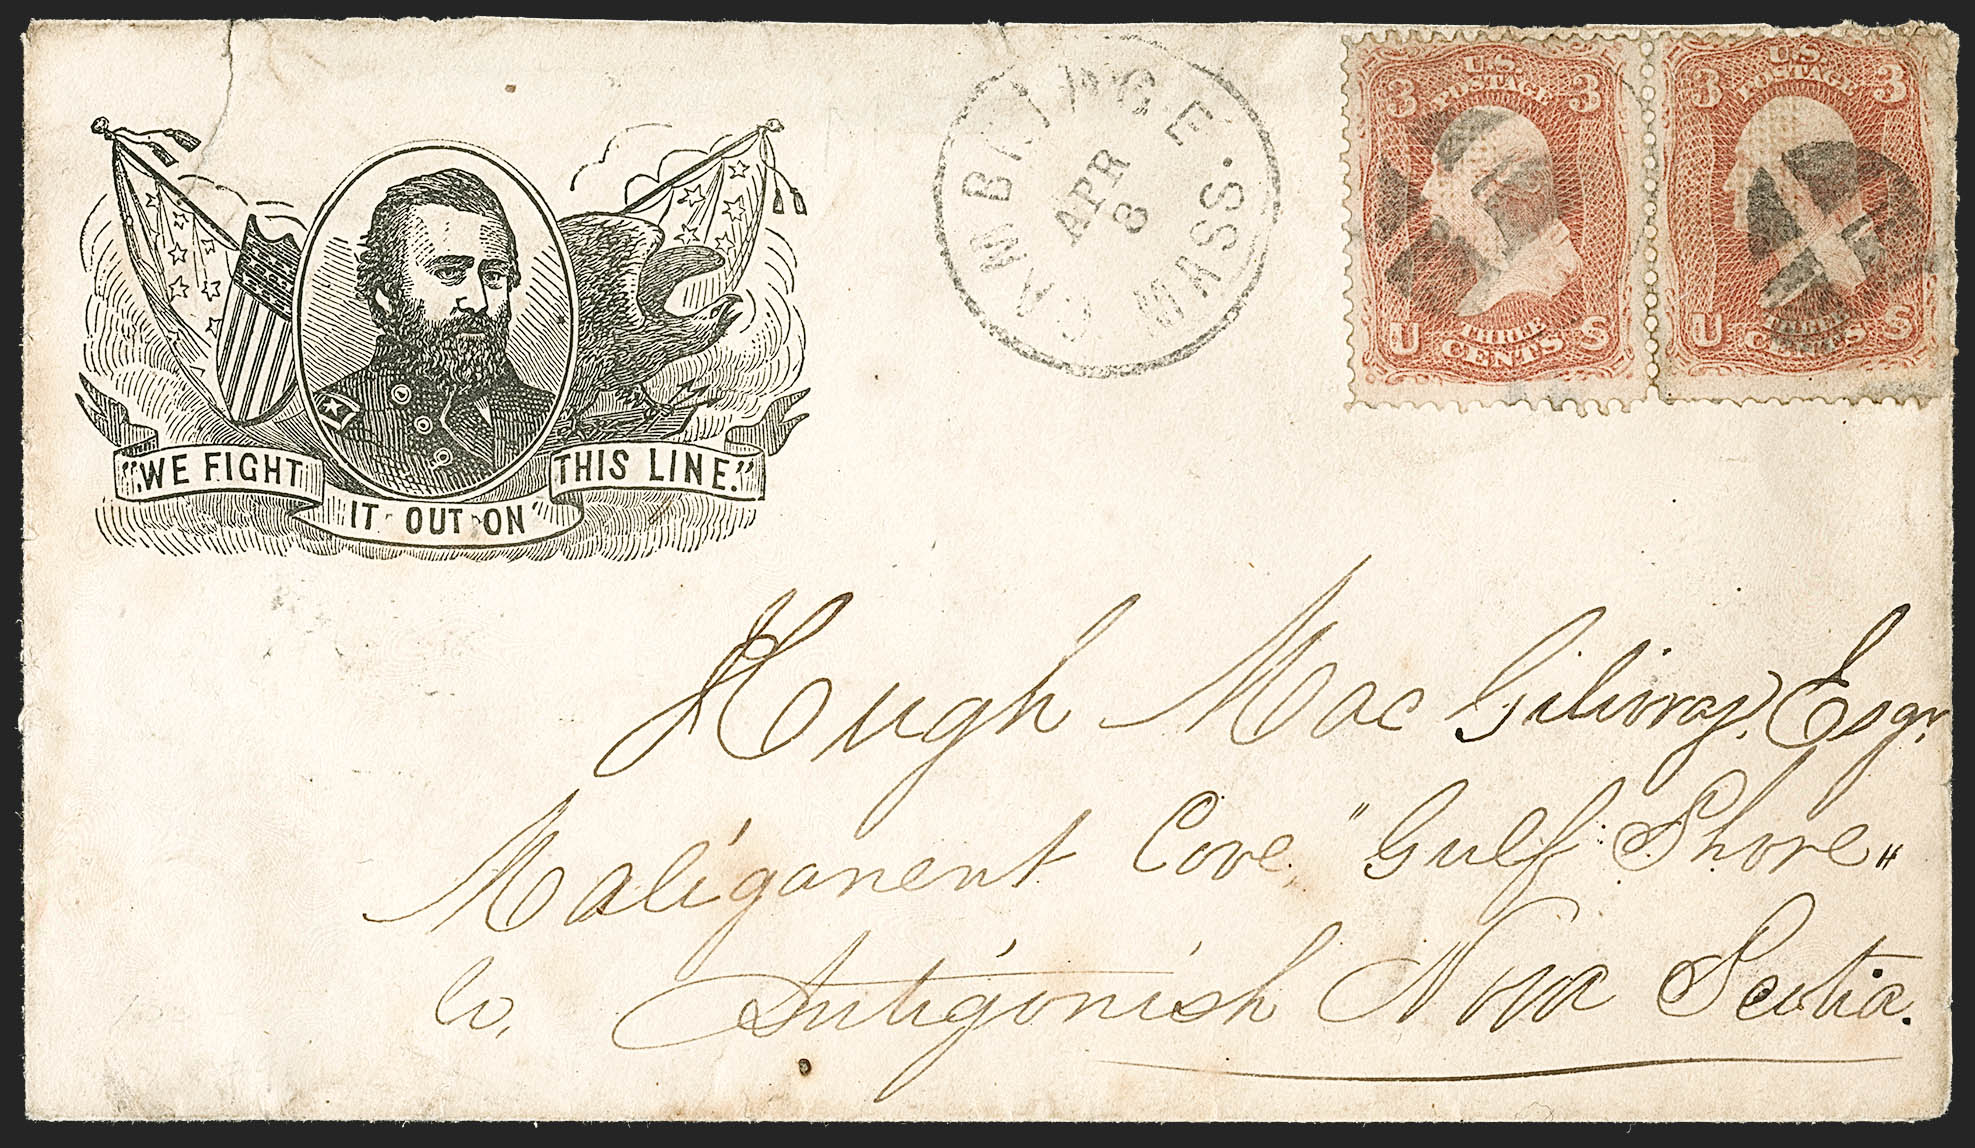 "WE FIGHT
IT OUT ON
THIS LINE."
CAMBRIDGE MASS.
APR
8
U.S.
POSTAGE
3 3
THREE
CENTS
U S
U.S.
POSTAGE
3 3
THREE
CENTS
U S
Hugh Mac Gilivray, Esqr.
Maliganent Cove, "Gulf Shore"
Co, Antigonish Nova Scotia.